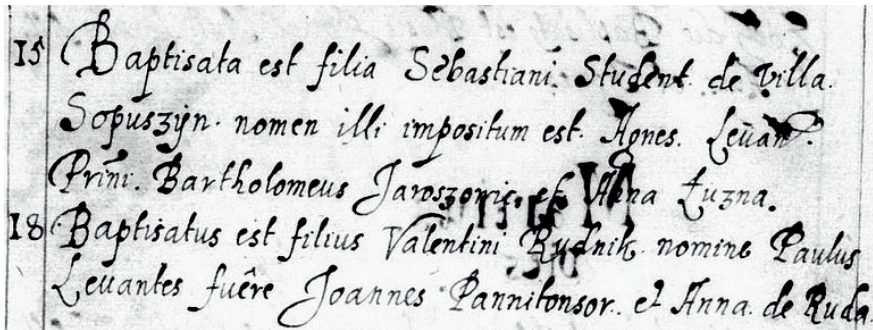 15 Baptisata est filia Sebastiani Student de villa.
Sopuszÿn. nomen illi impositum est. Agnes. Levan.
Prini. Bartholomeus Jaroszowic. et Anna Łuzna.
18 Baptisatus est filius Valentini Rudnik nomine Paulus
Levantes fuêre Joannes Pannitonsor. et Anna de Ruda.